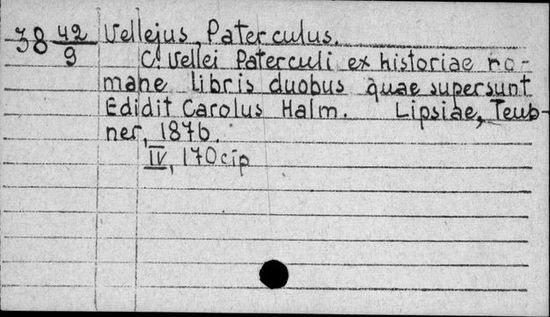 38 42/9 Vellejus Paterculus.
C. Vellei Paterculi ex historiae ro-
mane libris duobus quae supersunt
Edidit Carolus Halm. Lipsiae, Teub-
ner, 1876.
IV, 170 cip